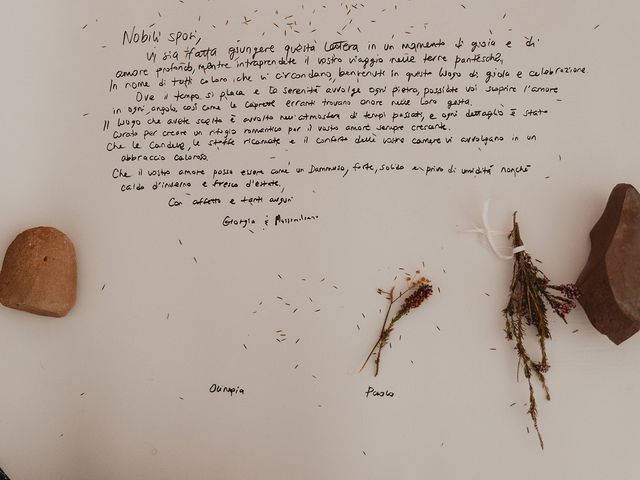 Nobili sposi,
Vi sia fatta giungere questa lettera in un momento di gioia e di
amore profondo, mentre intraprendete il vostro viaggio nelle terre pantesche,
In nome di tutti coloro, che vi circondano, benvenuti in questo luogo di gioia e celebrazione.
Ove il tempo si placa e la serenità avvolge ogni pietra, possiate voi scoprire l'amore
in ogni angolo, così come le caprette erranti trovano onore nelle loro gesta.
Il luogo che avete scelto è avvolto nell'atmosfera di tempi passati, e ogni dettaglio è stato
curato per creare un rifugio romantico per il vostro amore sempre crescente.
Che le candele, le stoffe ricamate e il conforto delle vostre camere vi avvolgano in un
abbraccio caloroso.
Che il vostro amore possa essere come un Dammuso, forte, solido e privo di umidità nonchè
caldo d'inverno e fresco d'estate,
Con affetto e tanti auguri
Giorgia e Massimiliano
Olimpia Paolo